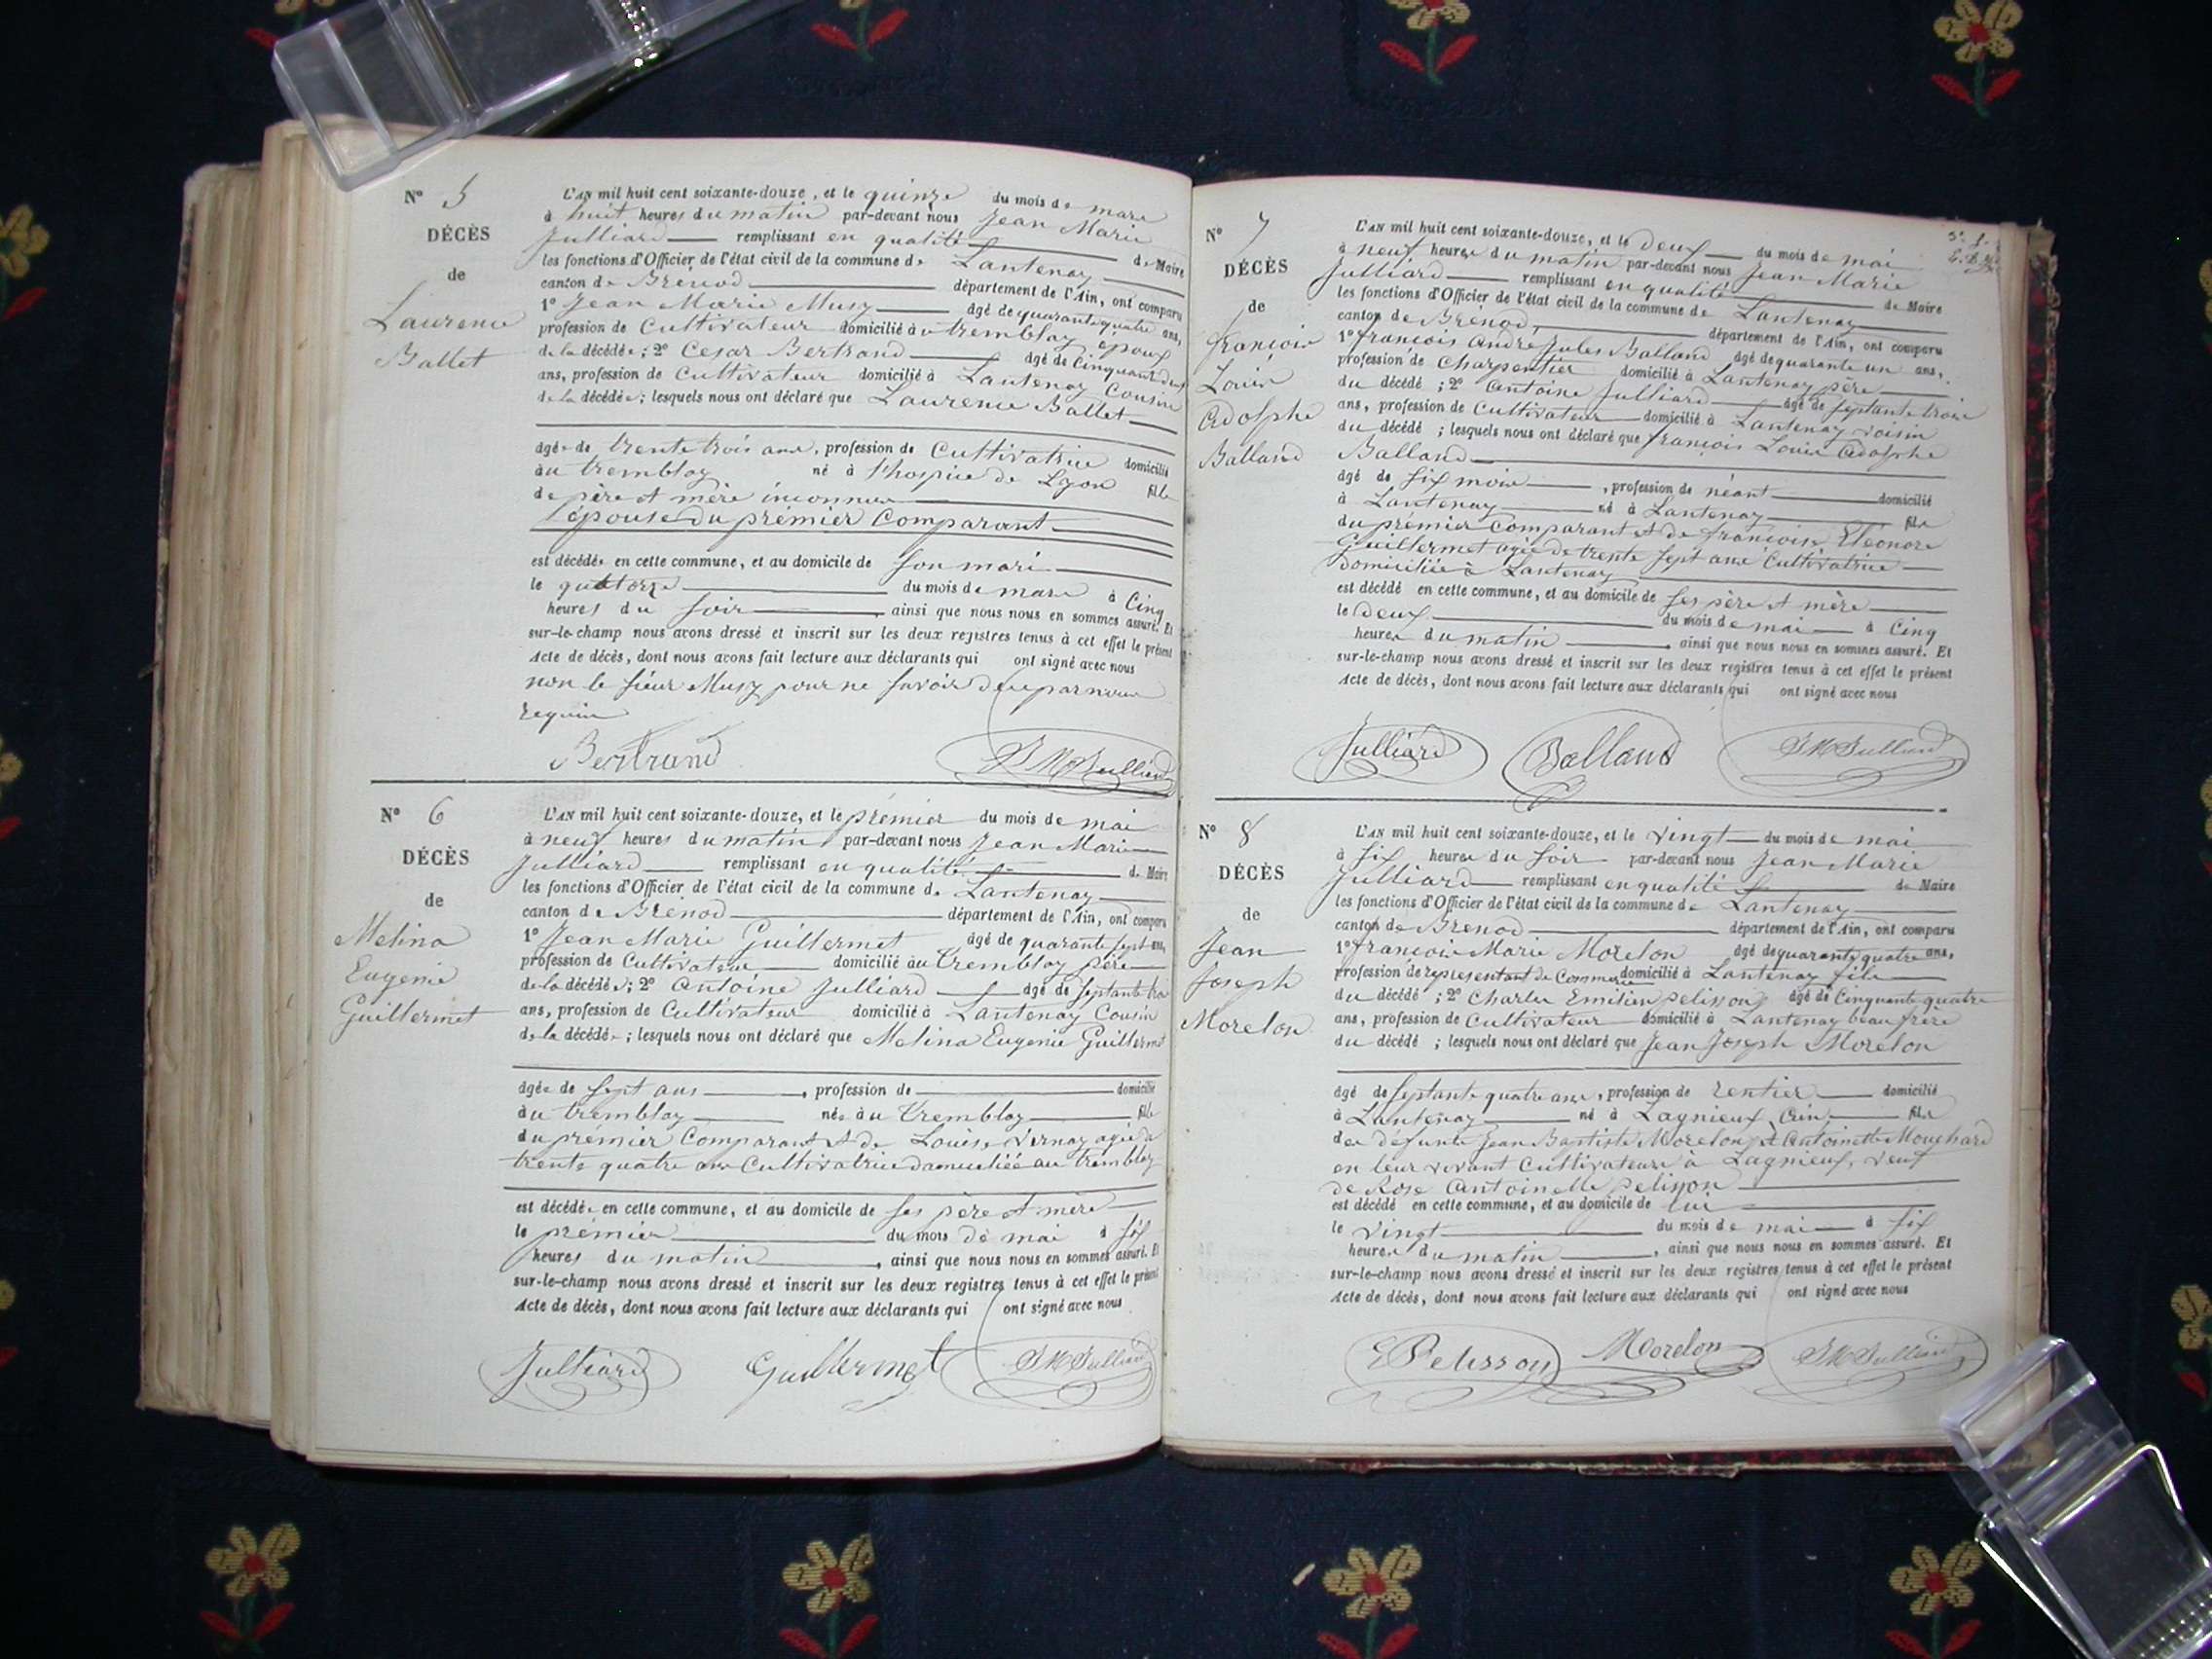 N° 5
DÉCÈS
de
Laurence
Ballet
L'AN mil huit cent soixante-douze, et le quinze du mois de mars
à huit heures du matin par-devant nous Jean Marie
Julliard remplissant en qualité de Maire
les fonctions d'Officier de l'état civil de la commune de Lantenay
canton de Brénod département de l'Ain, ont comparu
1° Jean Marie Musy âgé de quarante quatre ans,
profession de Cultivateur domicilié à u tremblay époux
de la décédée ; 2° Cesar Bertrand âgé de Cinquante deux
ans, profession de Cultivateur domicilié à Lantenay Cousin
de la décédée ; lesquels nous ont déclaré que Laurence Ballet
âgée de trente trois ans, profession de Cultivatrice domicilié
au tremblay né à l'hospice de Lyon fille
de père et mère inconnus
épouse du prémier Comparant
est décédée en cette commune, et au domicile de son mari
le quatorze du mois de mars à Cinq
heures du soir ainsi que nous nous en sommes assuré. Et
sur-le-champ nous avons dressé et inscrit sur les deux registres tenus à cet effet le présent
Acte de décès, dont nous avons fait lecture aux déclarants qui ont signé avec nous
non le sieur Musy pour ne savoir de ce par nous
requis
Bertrand JM Julliard
N° 6
DÉCÈS
de
Melina
Eugenie
Guillermet
L'AN mil huit cent soixante-douze, et le prémier du mois de mai
à neuf heures du matin par-devant nous Jean Marie
Julliard remplissant en qualité de Maire
les fonctions d'Officier de l'état civil de la commune de Lantenay
canton de Brénod département de l'Ain, ont comparu
1° Jean Marie Guillermet âgé de quarante sept ans,
profession de Cultivateur domicilié au tremblay père
de la décédée ; 2° Antoine Julliard âgé de septante trois
ans, profession de Cultivateur domicilié à Lantenay Cousin
de la décédée ; lesquels nous ont déclaré que Melina Eugenie Guillermet
âgée de sept ans, profession de domicilié
au tremblay née à u tremblay fille
du prémier Comparant et de Louise Virnay agée de
trente quatre ans Cultivatrice domiciliée au tremblay
est décédée en cette commune, et au domicile de ses père et mère
le prémier du mois de mai à six
heures du matin, ainsi que nous nous en sommes assuré. Et
sur-le-champ nous avons dressé et inscrit sur les deux registres tenus à cet effet le présent
Acte de décès, dont nous avons fait lecture aux déclarants qui ont signé avec nous
Julliard Guillermet JM Julliard
N° 7
DÉCÈS
de
françois
Louis
Adolphe
Balland
L'AN mil huit cent soixante-douze, et le deux du mois de mai
à neuf heures du matin par-devant nous Jean Marie
Julliard remplissant en qualité de Maire
les fonctions d'Officier de l'état civil de la commune de Lantenay
canton de Brénod, département de l'Ain, ont comparu
1° françois André Jules Balland âgé de quarante un ans,
profession de Charpentier domicilié à Lantenay père
du décédé ; 2° Antoine Julliard âgé de septante trois
ans, profession de Cultivateur domicilié à Lantenay voisin
du décédé ; lesquels nous ont déclaré que françois Louis Adolphe
Balland
âgé de six mois, profession de néant domicilié
à Lantenay né à Lantenay fils
du prémier Comparant et de françoise Eléonore
Guillermet agée de trente sept ans Cultivatrice
domiciliée à Lantenay
est décédé en cette commune, et au domicile de ses père et mère
le deux du mois de mai à Cinq
heures du matin, ainsi que nous nous en sommes assuré. Et
sur-le-champ nous avons dressé et inscrit sur les deux registres tenus à cet effet le présent
Acte de décès, dont nous avons fait lecture aux déclarants qui ont signé avec nous
Julliard Balland JM Julliard
N° 8
DÉCÈS
de
Jean
Joseph
Morelon
L'AN mil huit cent soixante-douze, et le vingt du mois de mai
à six heures du soir par-devant nous Jean Marie
Julliard remplissant en qualité de Maire
les fonctions d'Officier de l'état civil de la commune de Lantenay
canton de Brenod département de l'Ain, ont comparu
1° françois Marie Morelon âgé de quarante quatre ans,
profession de representant de Commerce domicilié à Lantenay fils
du décédé ; 2° Charles Emilien pelisson âgé de Cinquante quatre
ans, profession de Cultivateur domicilié à Lantenay beau frère
du décédé ; lesquels nous ont déclaré que Jean Joseph Morelon
âgé de septante quatre ans, profession de rentier domicilié
à Lantenay né à Lagnieux Ain fils
des défunts Jean Baptiste Morelon et Antoinette Mouchard
en leur vivant Cultivateurs à Lagnieux, veuf
de Rose Antoinette pelisson
est décédé en cette commune, et au domicile de lui
le vingt du mois de mai à six
heures du matin, ainsi que nous nous en sommes assuré. Et
sur-le-champ nous avons dressé et inscrit sur les deux registres tenus à cet effet le présent
Acte de décès, dont nous avons fait lecture aux déclarants qui ont signé avec nous
E Pelisson Morelon JM Julliard